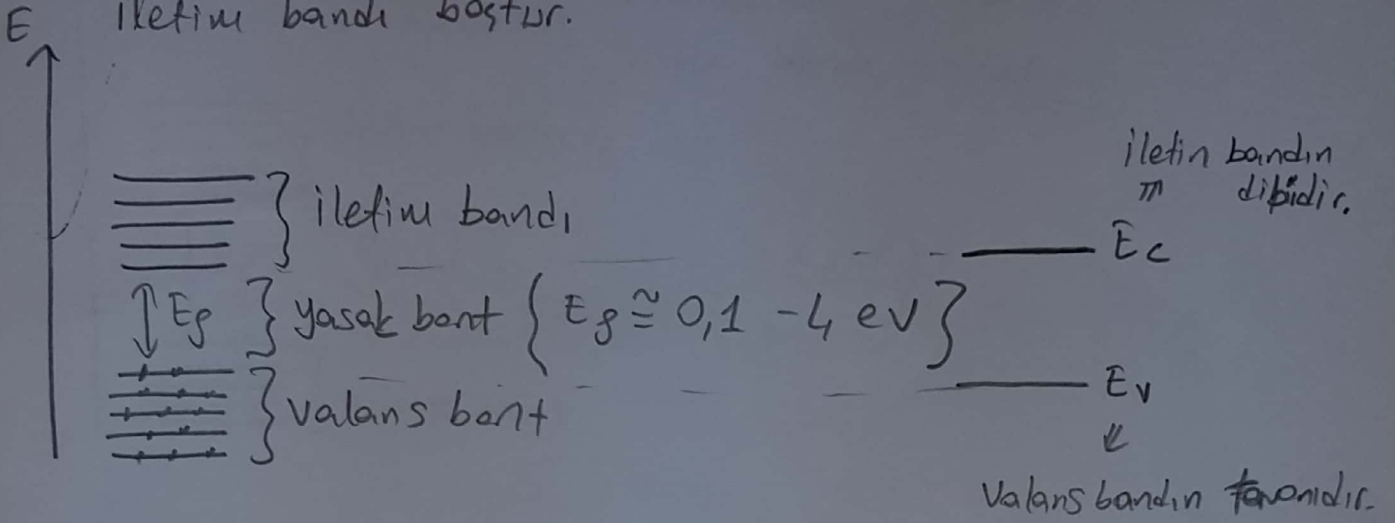 E iletim bandı boştur.
iletin bandın
dibidir.
iletim bandı
Ec
Eg } yasak bant { Eg ≅ 0,1 - 4 eV }
Ev
valans bant
Valans bandın tavanıdır.